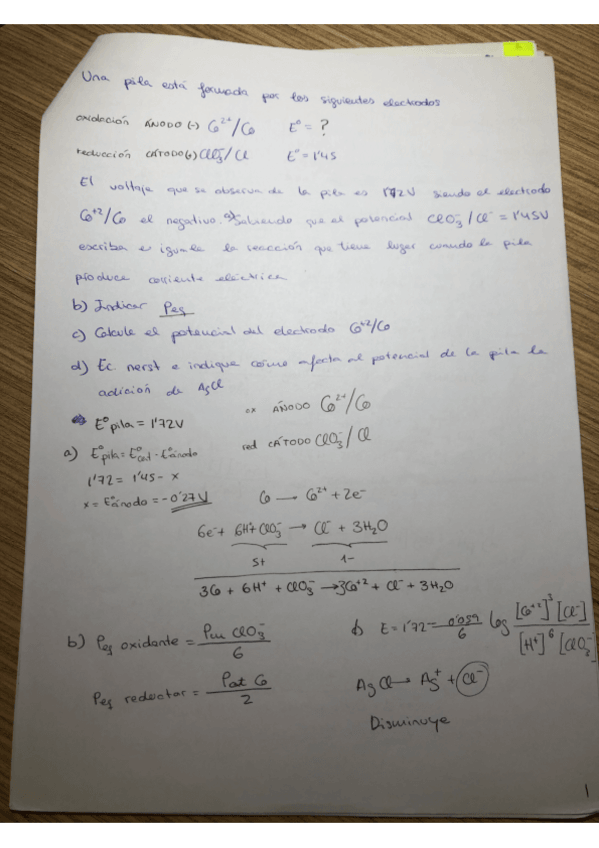 Una pila está formada por los siguientes electrodos
oxidación ÁNODO (-) Co²⁺/Co E° = ?
reducción CÁTODO(+) ClO₃⁻/Cl E° = 1'45
El voltaje que se observa de la pila es 1'72V siendo el electrodo
Co⁺²/Co el negativo. a) Sabiendo que el potencial ClO₃⁻/Cl⁻ = 1'45V
escriba e iguale la reacción que tiene lugar cuando la pila
produce corriente eléctrica
b) Indicar Peq
c) Calcule el potencial del electrodo Co⁺²/Co
d) Ec. nerst e indique cómo afecta al potencial de la pila la
adición de AgCl
E°pila = 1'72V
ox ÁNODO Co²⁺/Co
red CÁTODO ClO₃⁻/Cl
a) E°pila = E°cat - E°ánodo
1'72 = 1'45 - x
x = E°ánodo = -0'27V
Co → Co²⁺ + 2e⁻
6e⁻ + 6H⁺ + ClO₃⁻ → Cl⁻ + 3H₂O
5+ 1-
3Co + 6H⁺ + ClO₃⁻ → 3Co⁺² + Cl⁻ + 3H₂O
b) Peq oxidante = Pm ClO₃⁻ / 6
Peq reductor = Pat Co / 2
d) E = 1'72 - 0'059/6 log [Co⁺²]³ [Cl⁻] / [H⁺]⁶ [ClO₃⁻]
AgCl → Ag⁺ + Cl⁻
Disminuye
1